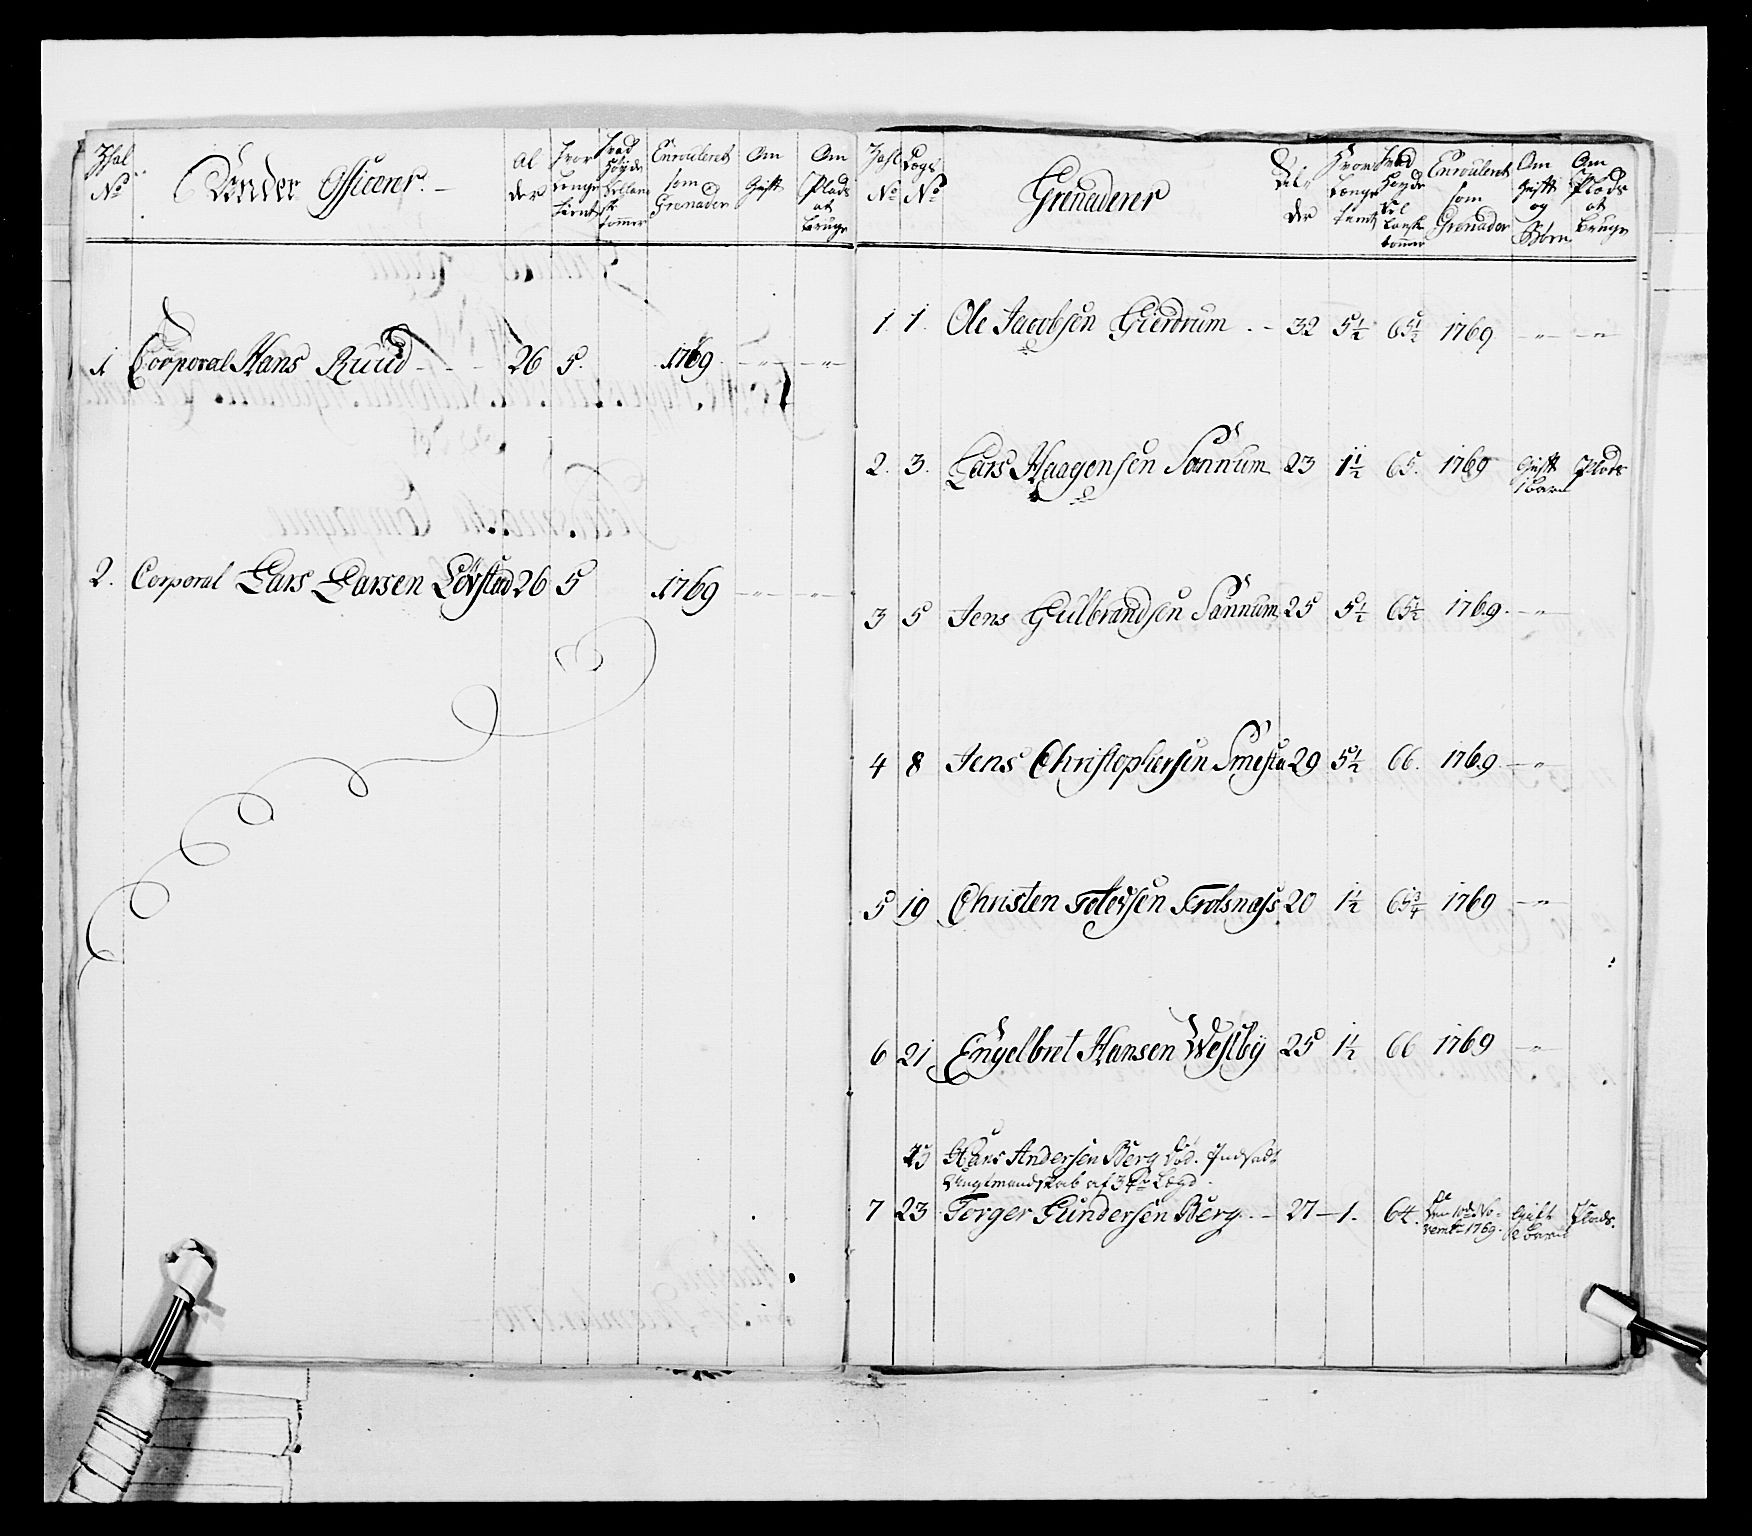 Zhal No
Under Officerer.
Al der
Hvor Længe tient
Hvad Høyde tommer
Enrouleret som Grenader
Om Gift
Om Plads at bruge
1 Corporal Hans Ruud - - - 26 5. 1769 - " - - " -
2. Corporal Lars Larsen Løvstad 26 5 1769 - " - - " -
Zahl No
Lægs No
Grenaderer
Al, der
Hvor Længe tient
Hvad Høyde tommer
Enrouleret som Grenader
Om Gift og Børn
Om Plads at bruge
1. 1. Ole Jacobsen Gierdrum . - 32 5½ 65½ 1769 - " - - " -
2. 3. Lars Haagensen Sannum 23 1½ 65. 1769 Gift 1 barn Plads
3 5 Jens Gulbrandsen Sannum 25 5½ 65½ 1769. - " -
4 8 Jens Christophersen Smesta 29 5½ 66. 1769. - " -
5 19 Christen Petersen Trolsnæss 20 1½ 65¾ 1769 - " -
6 21 Engelbret Hansen Westby 25 1½ 66 1769 - " -
23 Hans Andersen Berg død. Indsadt
af 3 Lægd.
7 23 Torger Gundersen Berg. - 27 - 1. 64. 1769. Gift 2 barn Plads.